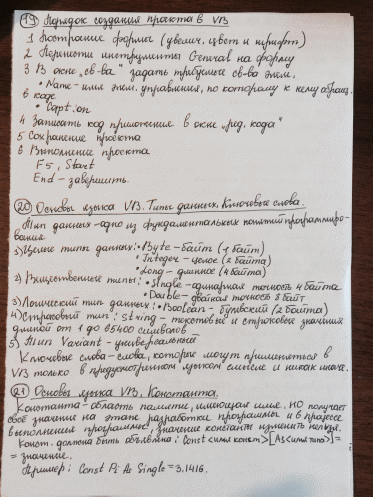 19 Порядок создания проекта в VB
1 Построение формы (увелич. цвет и шрифт)
2 Перенести инструменты General на форму
3 В окне „св-ва" задать требуемые св-ва элем.
• Name – имя элем. управления, по которому к нему обращ.
в коде
• Caption
4 Записать код приложения в окне „ред. кода"
5 Сохранение проекта
6 Выполнение проекта
F5, Start
End – завершить.
20 Основы языка VB. Типы данных. Ключевые слова.
Тип данных – одно из фундаментальных понятий программиро-
вания
1) Целые типы данных: • Byte – байт (1 байт)
• Integer – целое (2 байта)
• Long – длинное (4 байта)
2) Вещественные типы: • Single – одинарная точность 4 байта
• Double – двойная точность 8 байт
3) Логический тип данных: • Boolean – булевский (2 байта)
4) Строковый тип: String – текстовые и строковые значения
длиной от 1 до 65400 символов
5) Тип Variant – универсальные
Ключевые слова – слова, которые могут применяться в
VB только в предусмотренном языком смысле и никак иначе.
21 Основы языка VB. Константа.
Константа – область памяти, имеющая имя. НО получает
своё значение на этапе разработки программы и в процессе
выполнения программы, значение константы изменить нельзя.
Конст. должна быть объявлена: Const <имя конст> [As <имя типа>] =
= значение.
Пример: Const Pi As Single = 3.1416.